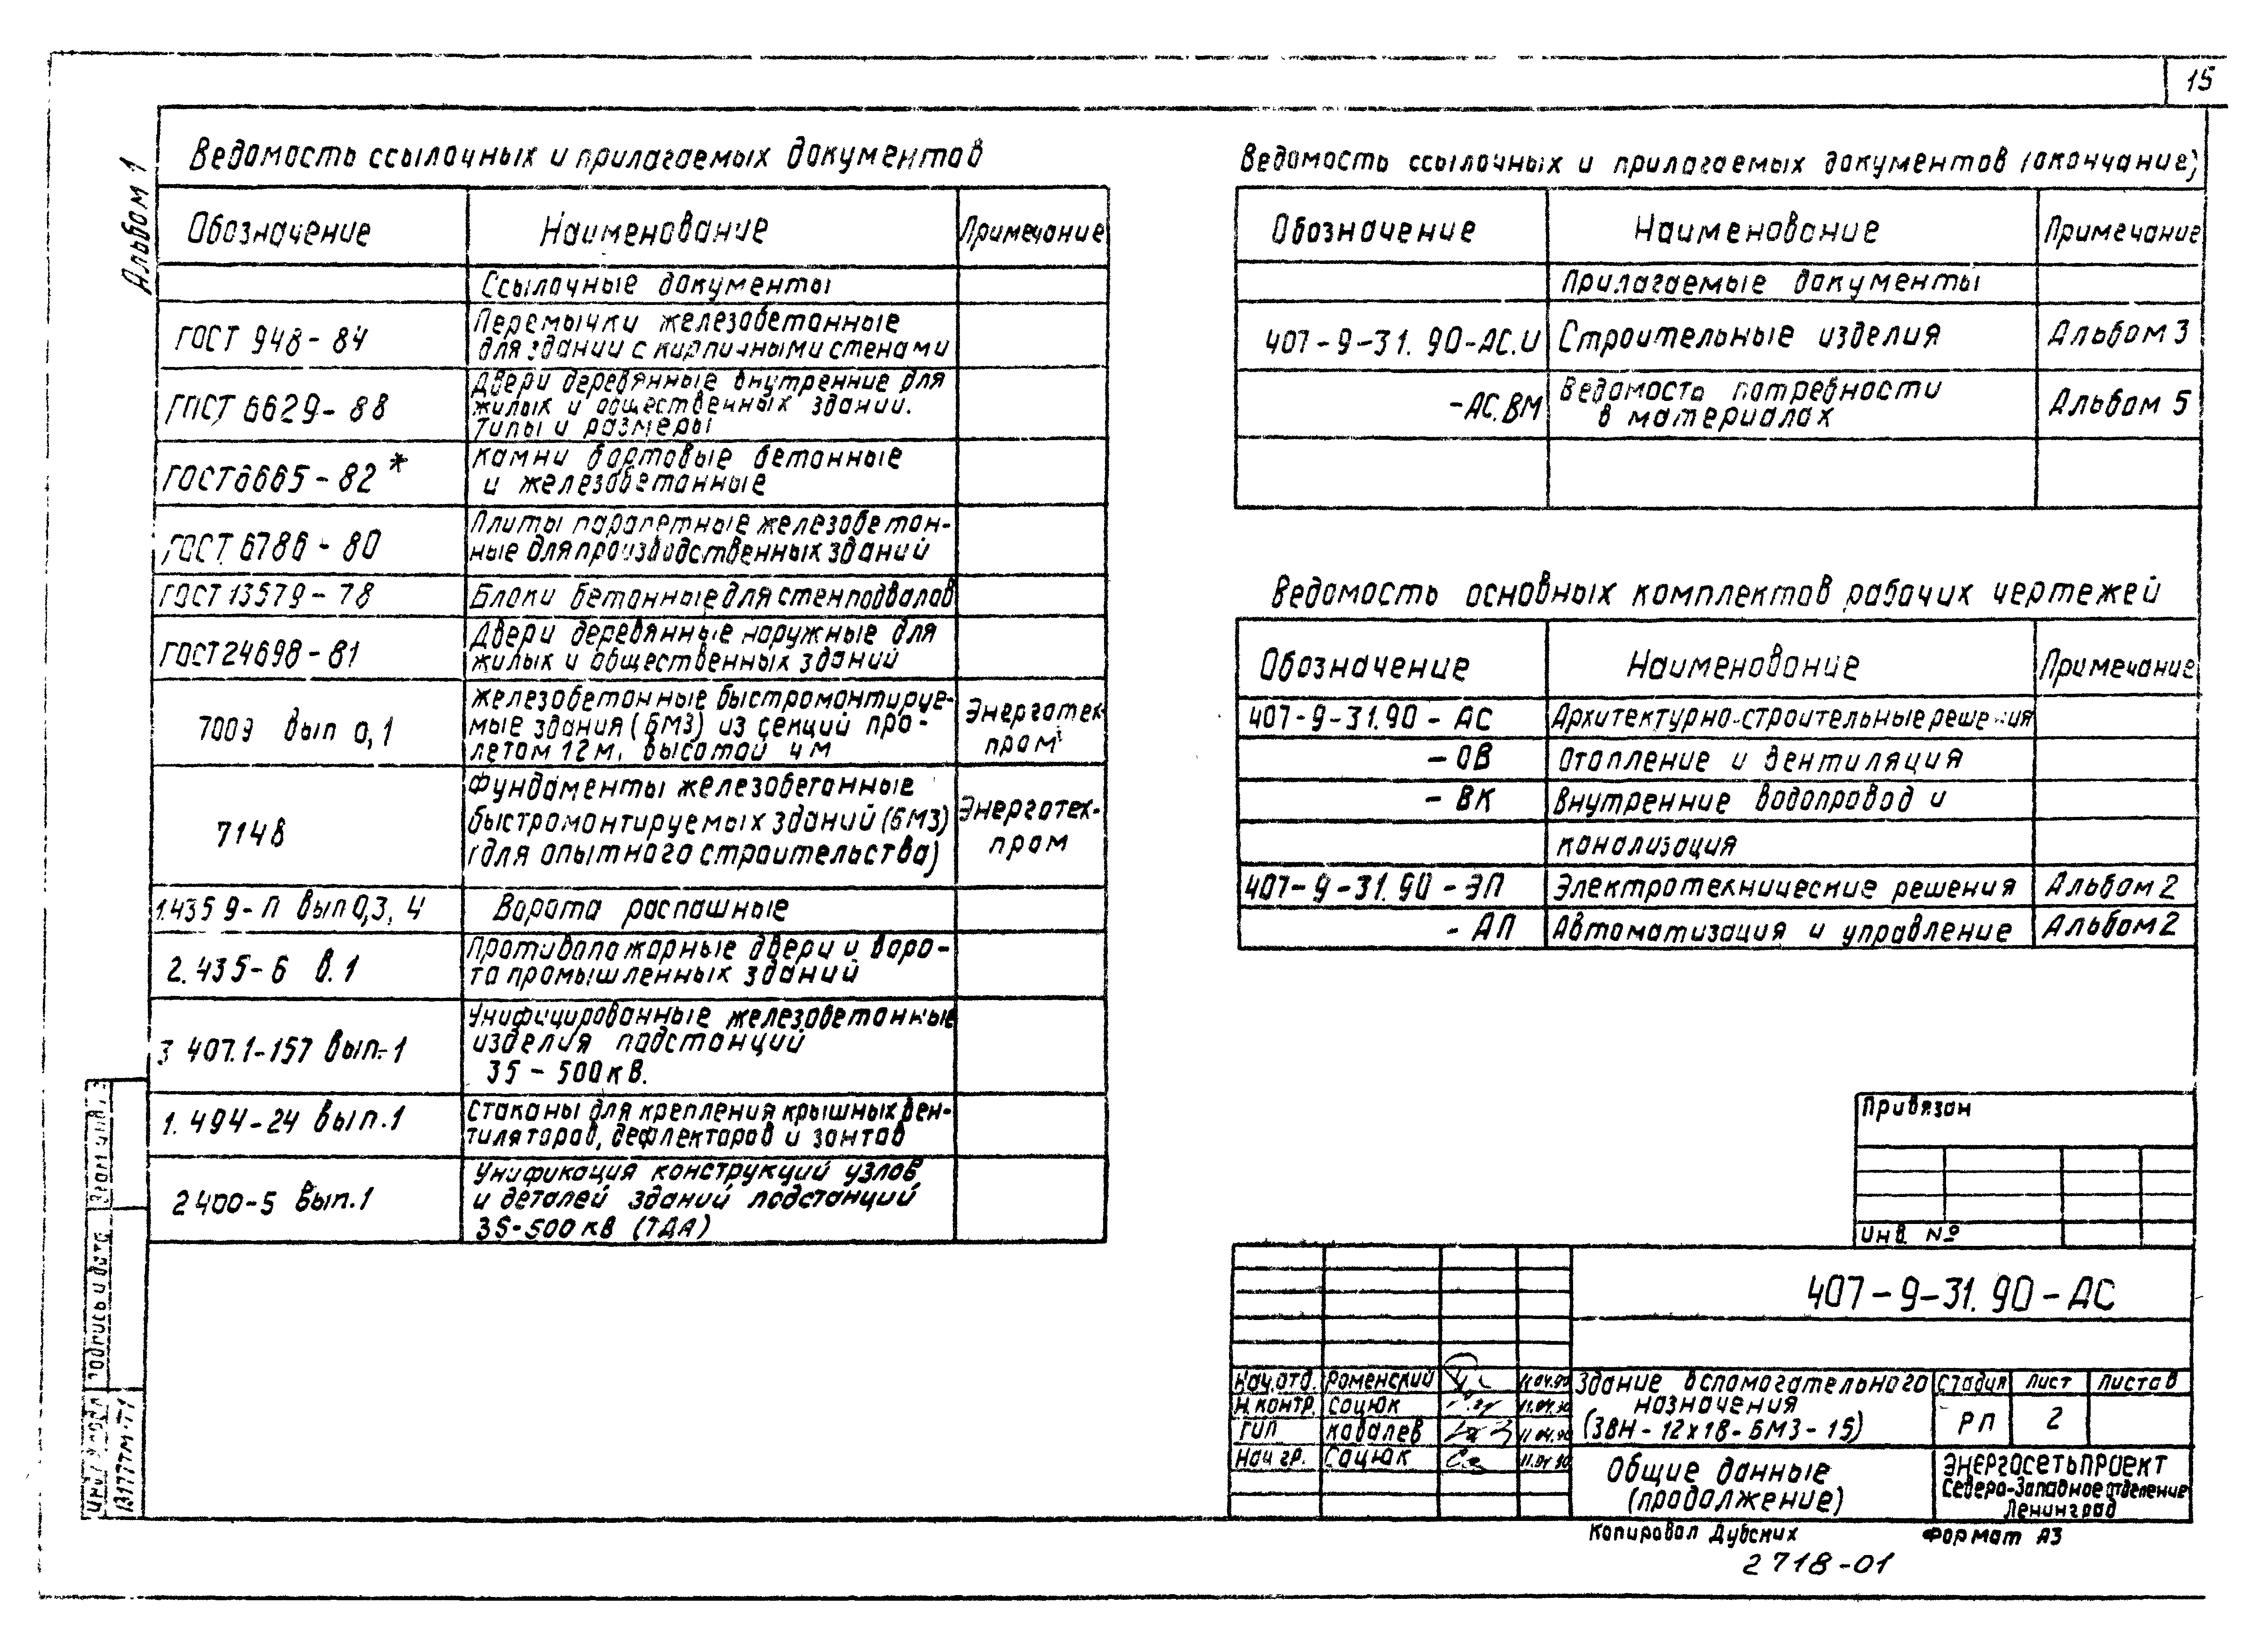 15
Альбом 1
Ведомость ссылочных и прилагаемых документов
Обозначение Наименование Примечание
Ссылочные документы
ГОСТ 948-84 Перемычки железобетонные
для зданий с кирпичными стенами
ГОСТ 6629-88 Двери деревянные внутренние для
жилых и общественных зданий.
Типы и размеры
ГОСТ 6665-82* Камни бортовые бетонные
и железобетонные
ГОСТ 6786-80 Плиты парапетные железобетон-
ные для производственных зданий
ГОСТ 13579-78 Блоки бетонные для стен подвалов
ГОСТ 24698-81 Двери деревянные наружные для
жилых и общественных зданий
7009 вып 0,1 Железобетонные быстромонтируе-
мые здания (БМЗ) из секций про-
летом 12м, высотой 4м
Энерготех
пром
7148 Фундаменты железобетонные
быстромонтируемых зданий (БМЗ)
(для опытного строительства)
Энерготех-
пром
1.435 9-П вып 0,3,4 Ворота распашные
2.435-6 в.1 Противопожарные двери и воро-
та промышленных зданий
3 407.1-157 вып.1 Унифицированные железобетонные
изделия подстанций
35-500кВ.
1.494-24 вып.1 Стаканы для крепления крышных вен-
тиляторов, дефлекторов и зонтов
2 400-5 вып.1 Унификация конструкций узлов
и деталей зданий подстанций
35-500 кВ (ТДА)
Ведомость ссылочных и прилагаемых документов (окончание)
Обозначение Наименование Примечание
Прилагаемые документы
407-9-31.90-АС.И Строительные изделия Альбом 3
-АС.ВМ Ведомость потребности
в материалах
Альбом 5
Ведомость основных комплектов рабочих чертежей
Обозначение Наименование Примечание
407-9-31.90-АС Архитектурно-строительные решения
-ОВ Отопление и вентиляция
-ВК Внутренние водопровод и
канализация
407-9-31.90-ЭП Электротехнические решения Альбом 2
-АП Автоматизация и управление Альбом 2
Привязан
Инв. №
407-9-31.90-АС
Нач.отд. Роменский 11.04.90
Н.контр. Соцюк 11.04.90
ГИП Ковалев 11.04.90
Нач гр. Соцюк 11.04.90
Здание вспомогательного
назначения
(ЗВН-12х18-БМЗ-15)
Стадия Лист Листов
РП 2
Общие данные
(продолжение)
ЭНЕРГОСЕТЬПРОЕКТ
Северо-Западное отделение
Ленинград
Копировал Дубских Формат А3
2718-01
Взам инв.
Подпись и дата
Инв. № подл
13777тм-т1